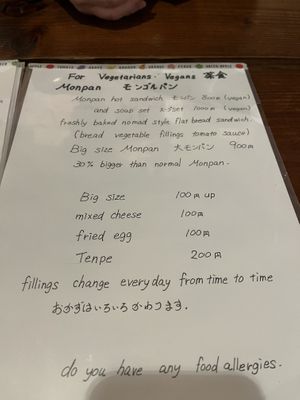 For Vegetarians・Vegans 菜食
Monpan モンゴルパン
Monpan hot sandwich モンパン 800円 (vegan)
and soup set スープset 1000円 (vegan)
freshly baked nomad style flat bread sandwich.
(bread vegetable fillings tomato sauce)
Big size Monpan 大モンパン 900円
30% bigger than normal Monpan.
Big size 100円 up
mixed cheese 100円
fried egg 100円
Tenpe 200円
fillings change everyday from time to time
おかずはいろいろかわります.
do you have any food allergies.